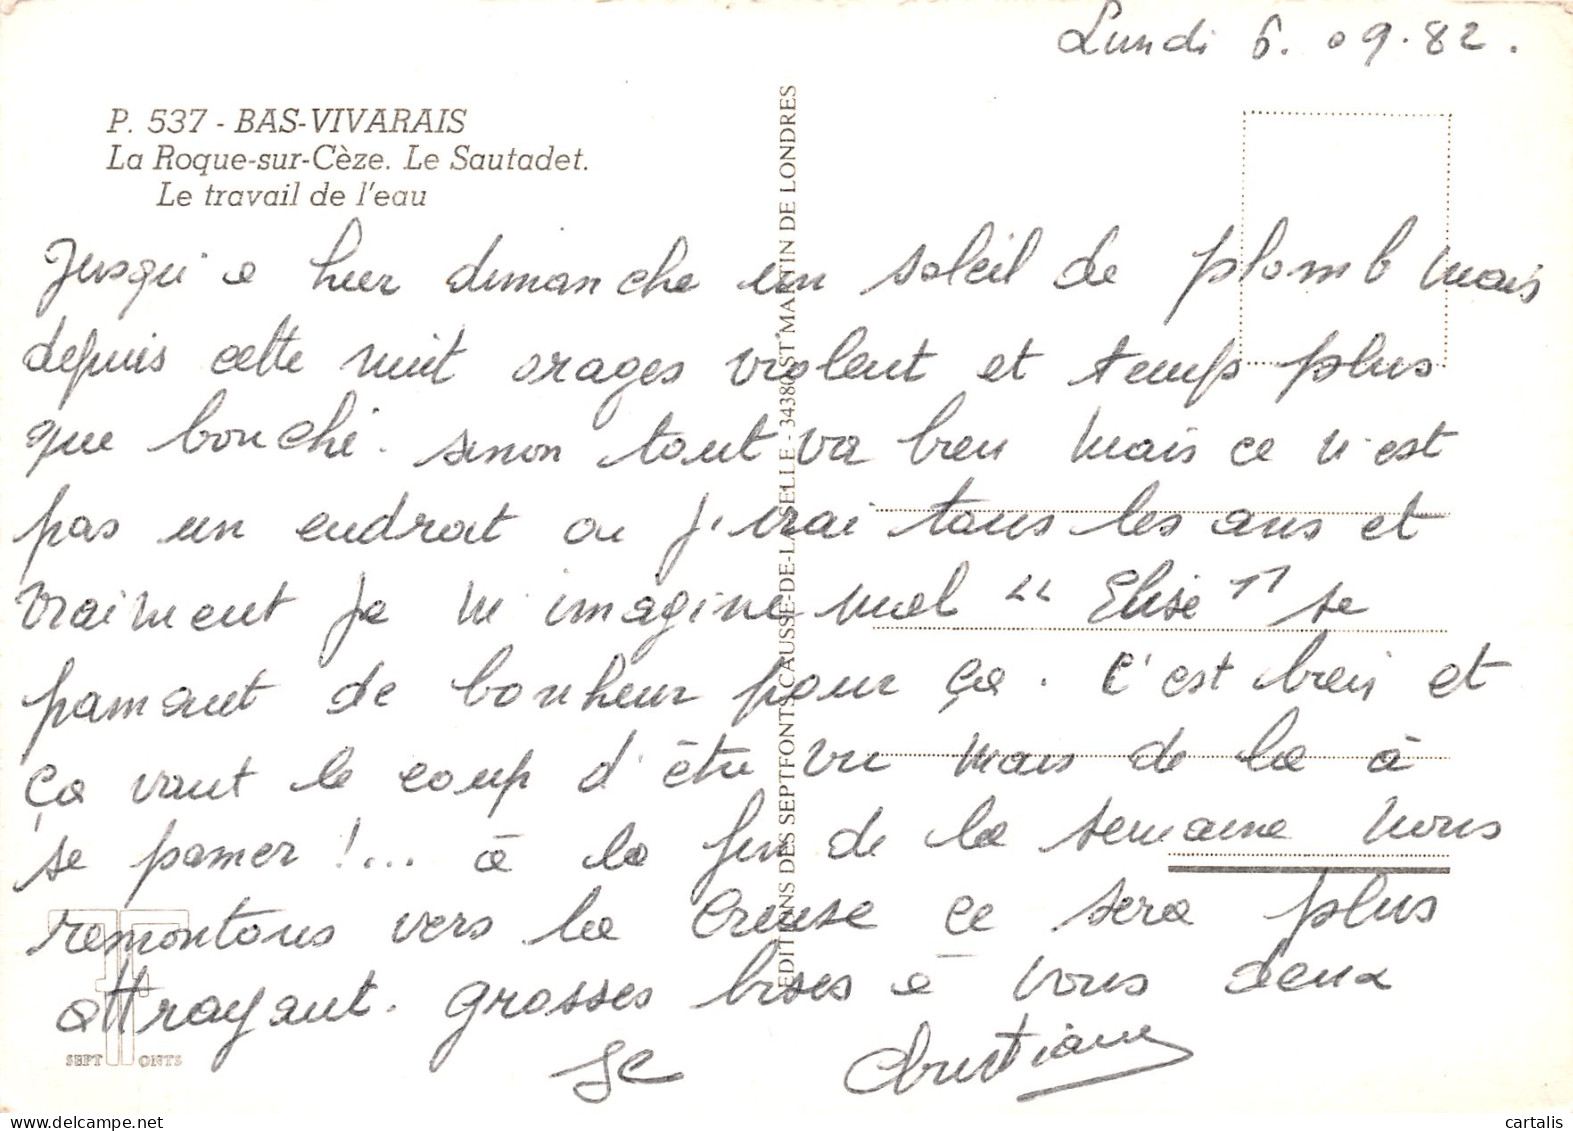 Lundi 6.09.82.
P. 537 - BAS-VIVARAIS
La Roque-sur-Cèze. Le Sautadet.
Le travail de l'eau
Jusqu'a hier dimanche un soleil de plomb mais
depuis cette nuit orages violent et temps plus
que bouché. sinon tout va bien mais ce n'est
pas un endroit ou j'irai tous les ans et
vraiment je m'imagine mal "Elise" se
pamant de bonheur pour ça. C'est bien et
ça vaut le coup d'être vu mais de la à
se pamer !... à la fin de la semaine nous
remontons vers la Creuse ce sera plus
attrayant. grosses bises à vous deux
JC Christiane
EDITIONS DES SEPTFONTS CAUSSE-DE-LA-SELLE - 34380 ST MARTIN DE LONDRES
SEPT FONTS
cartalis